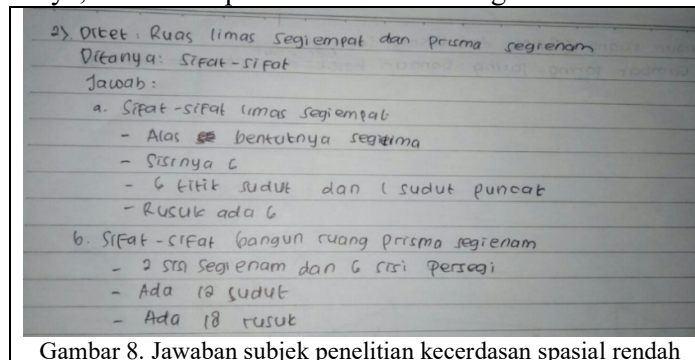 2) Diket : Ruas limas segiempat dan prisma segienam
Ditanya : Sifat-sifat
Jawab :
a. Sifat-sifat limas segiempat
- Alas bentuknya segilima
- Sisinya 6
- 6 titik sudut dan 1 sudut puncak
- Rusuk ada 6
b. Sifat-sifat bangun ruang prisma segienam
- 2 sisi segienam dan 6 sisi persegi
- Ada 12 sudut
- Ada 18 rusuk
Gambar 8. Jawaban subjek penelitian kecerdasan spasial rendah